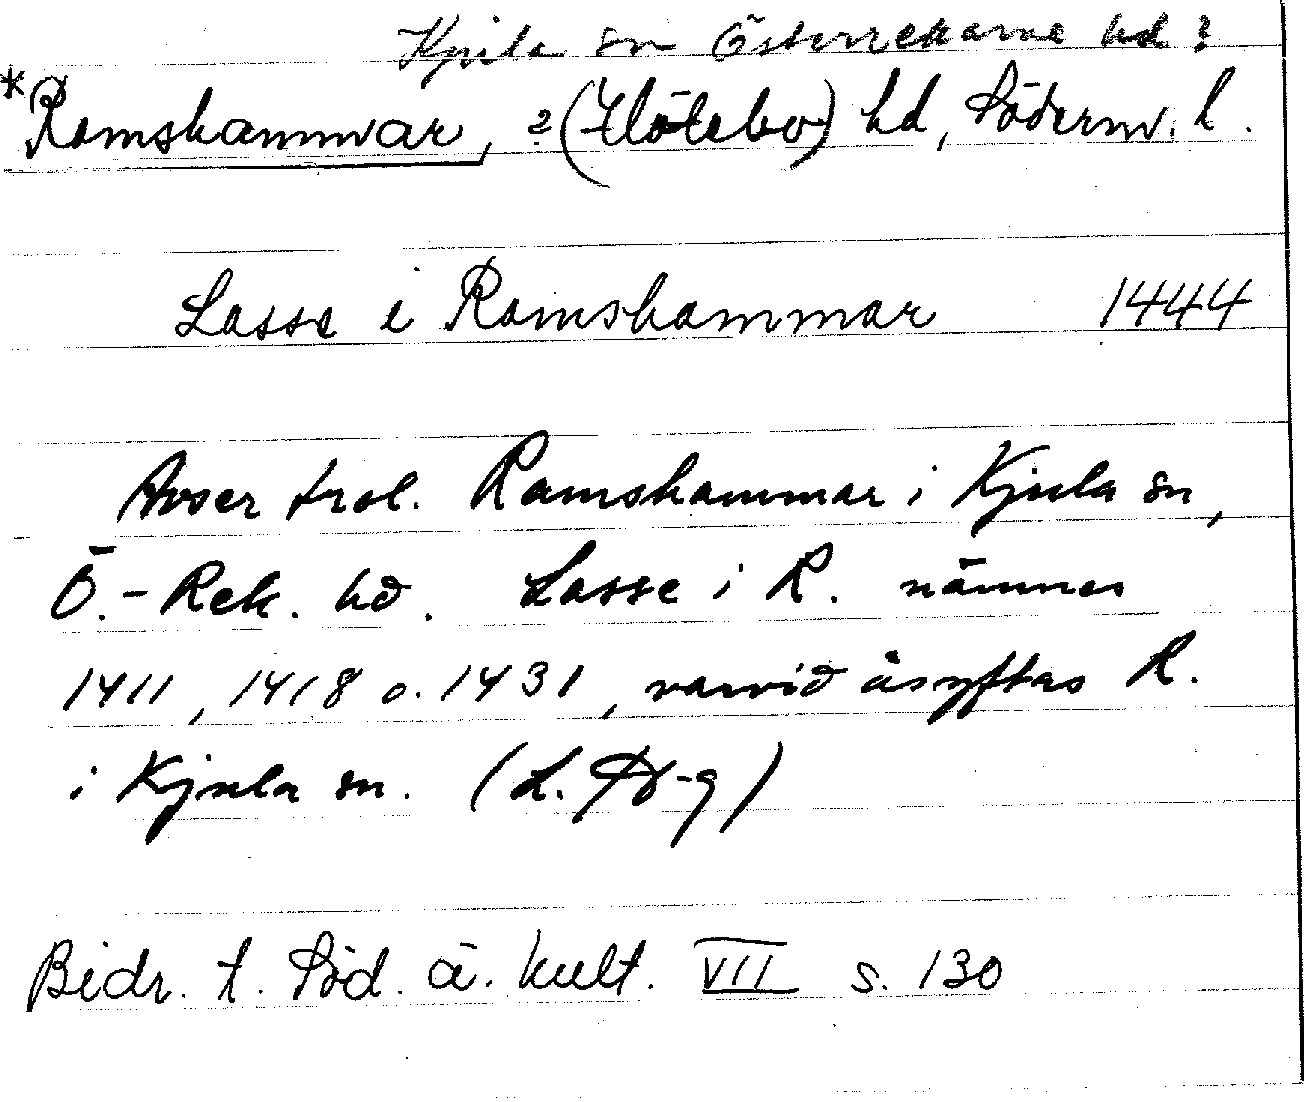 Kjula sn Österrekarne hd?
*Ramshammar, ? (Hölebo) hd, Söderm. l.
Lasse i Ramshammar 1444
Avser trol. Ramshammar i Kjula sn,
Ö.-Rek. hd. Lasse i R. nämnes
1411, 1418 o. 1431, varvid åsyftas R.
i Kjula sn. (L. -g)
Bidr. t. Söd. ä. kult. VII s. 130